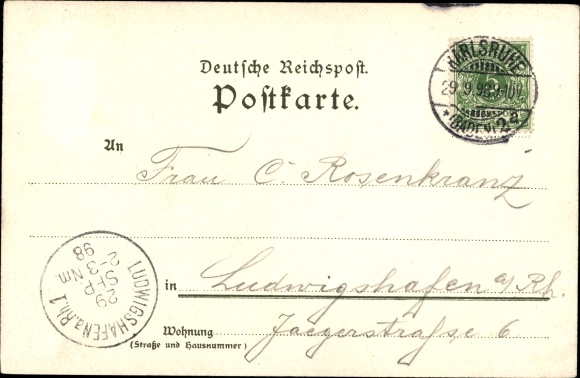 Deutsche Reichspost.
Postkarte.
KARLSRUHE
29.9.98.9-10V.
*(BADEN)2a*
An Frau C. Rosenkranz
in Ludwigshafen a/Rh.
Wohnung Jaegerstraße 6
(Straße und Hausnummer)
LUDWIGSHAFEN a. Rh. 1
29
SEP
2-3 Nm
98